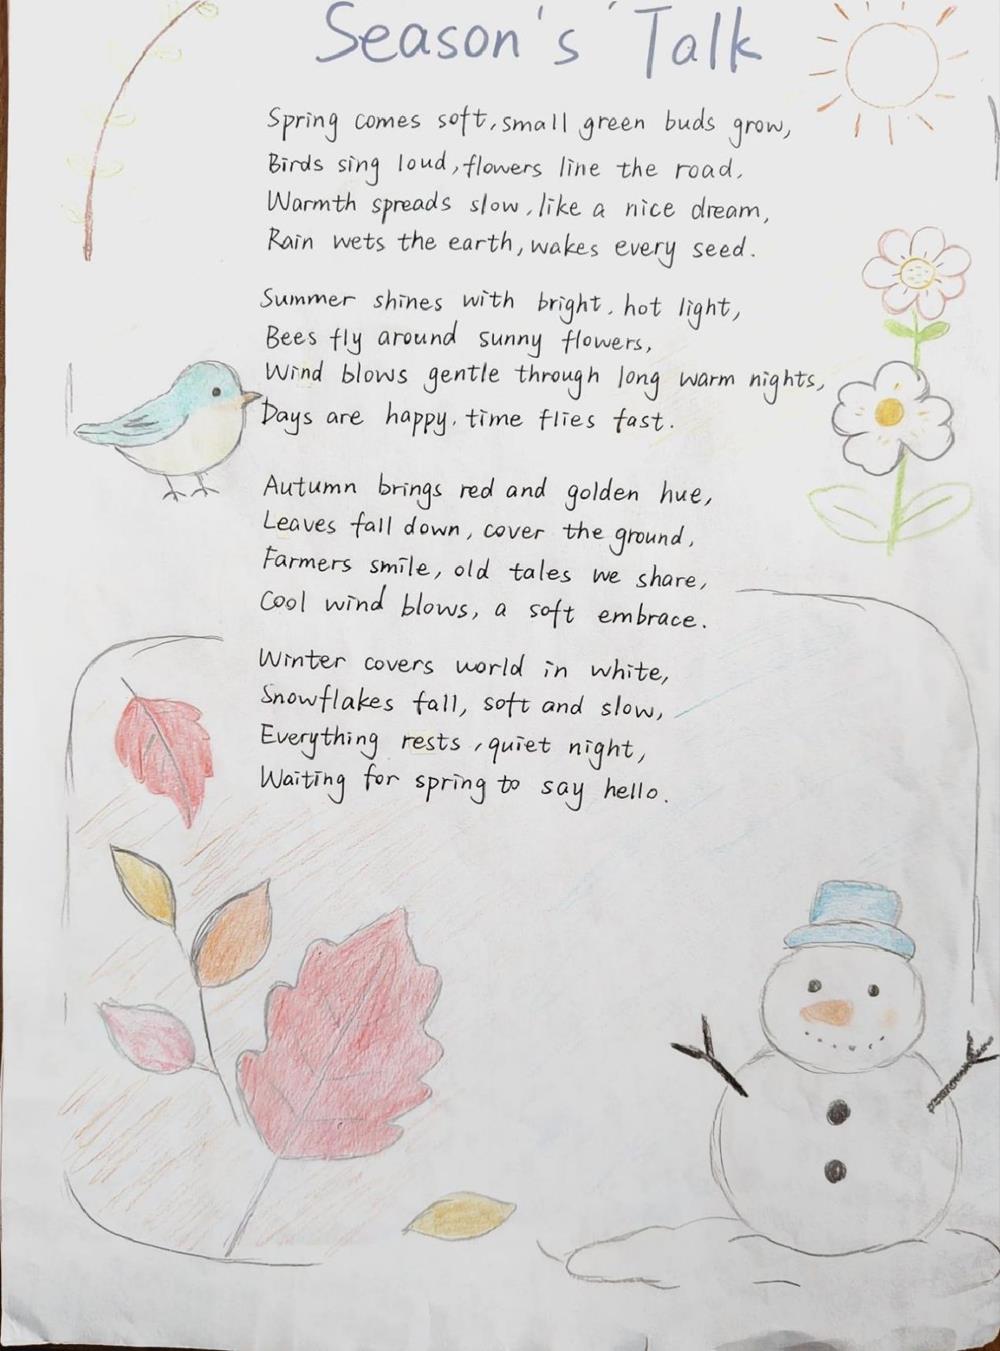 Season's Talk
Spring comes soft, small green buds grow,
Birds sing loud, flowers line the road.
Warmth spreads slow, like a nice dream,
Rain wets the earth, wakes every seed.
Summer shines with bright, hot light,
Bees fly around sunny flowers,
Wind blows gentle through long warm nights,
Days are happy, time flies fast.
Autumn brings red and golden hue,
Leaves fall down, cover the ground,
Farmers smile, old tales we share,
Cool wind blows, a soft embrace.
Winter covers world in white,
Snowflakes fall, soft and slow,
Everything rests, quiet night,
Waiting for spring to say hello.